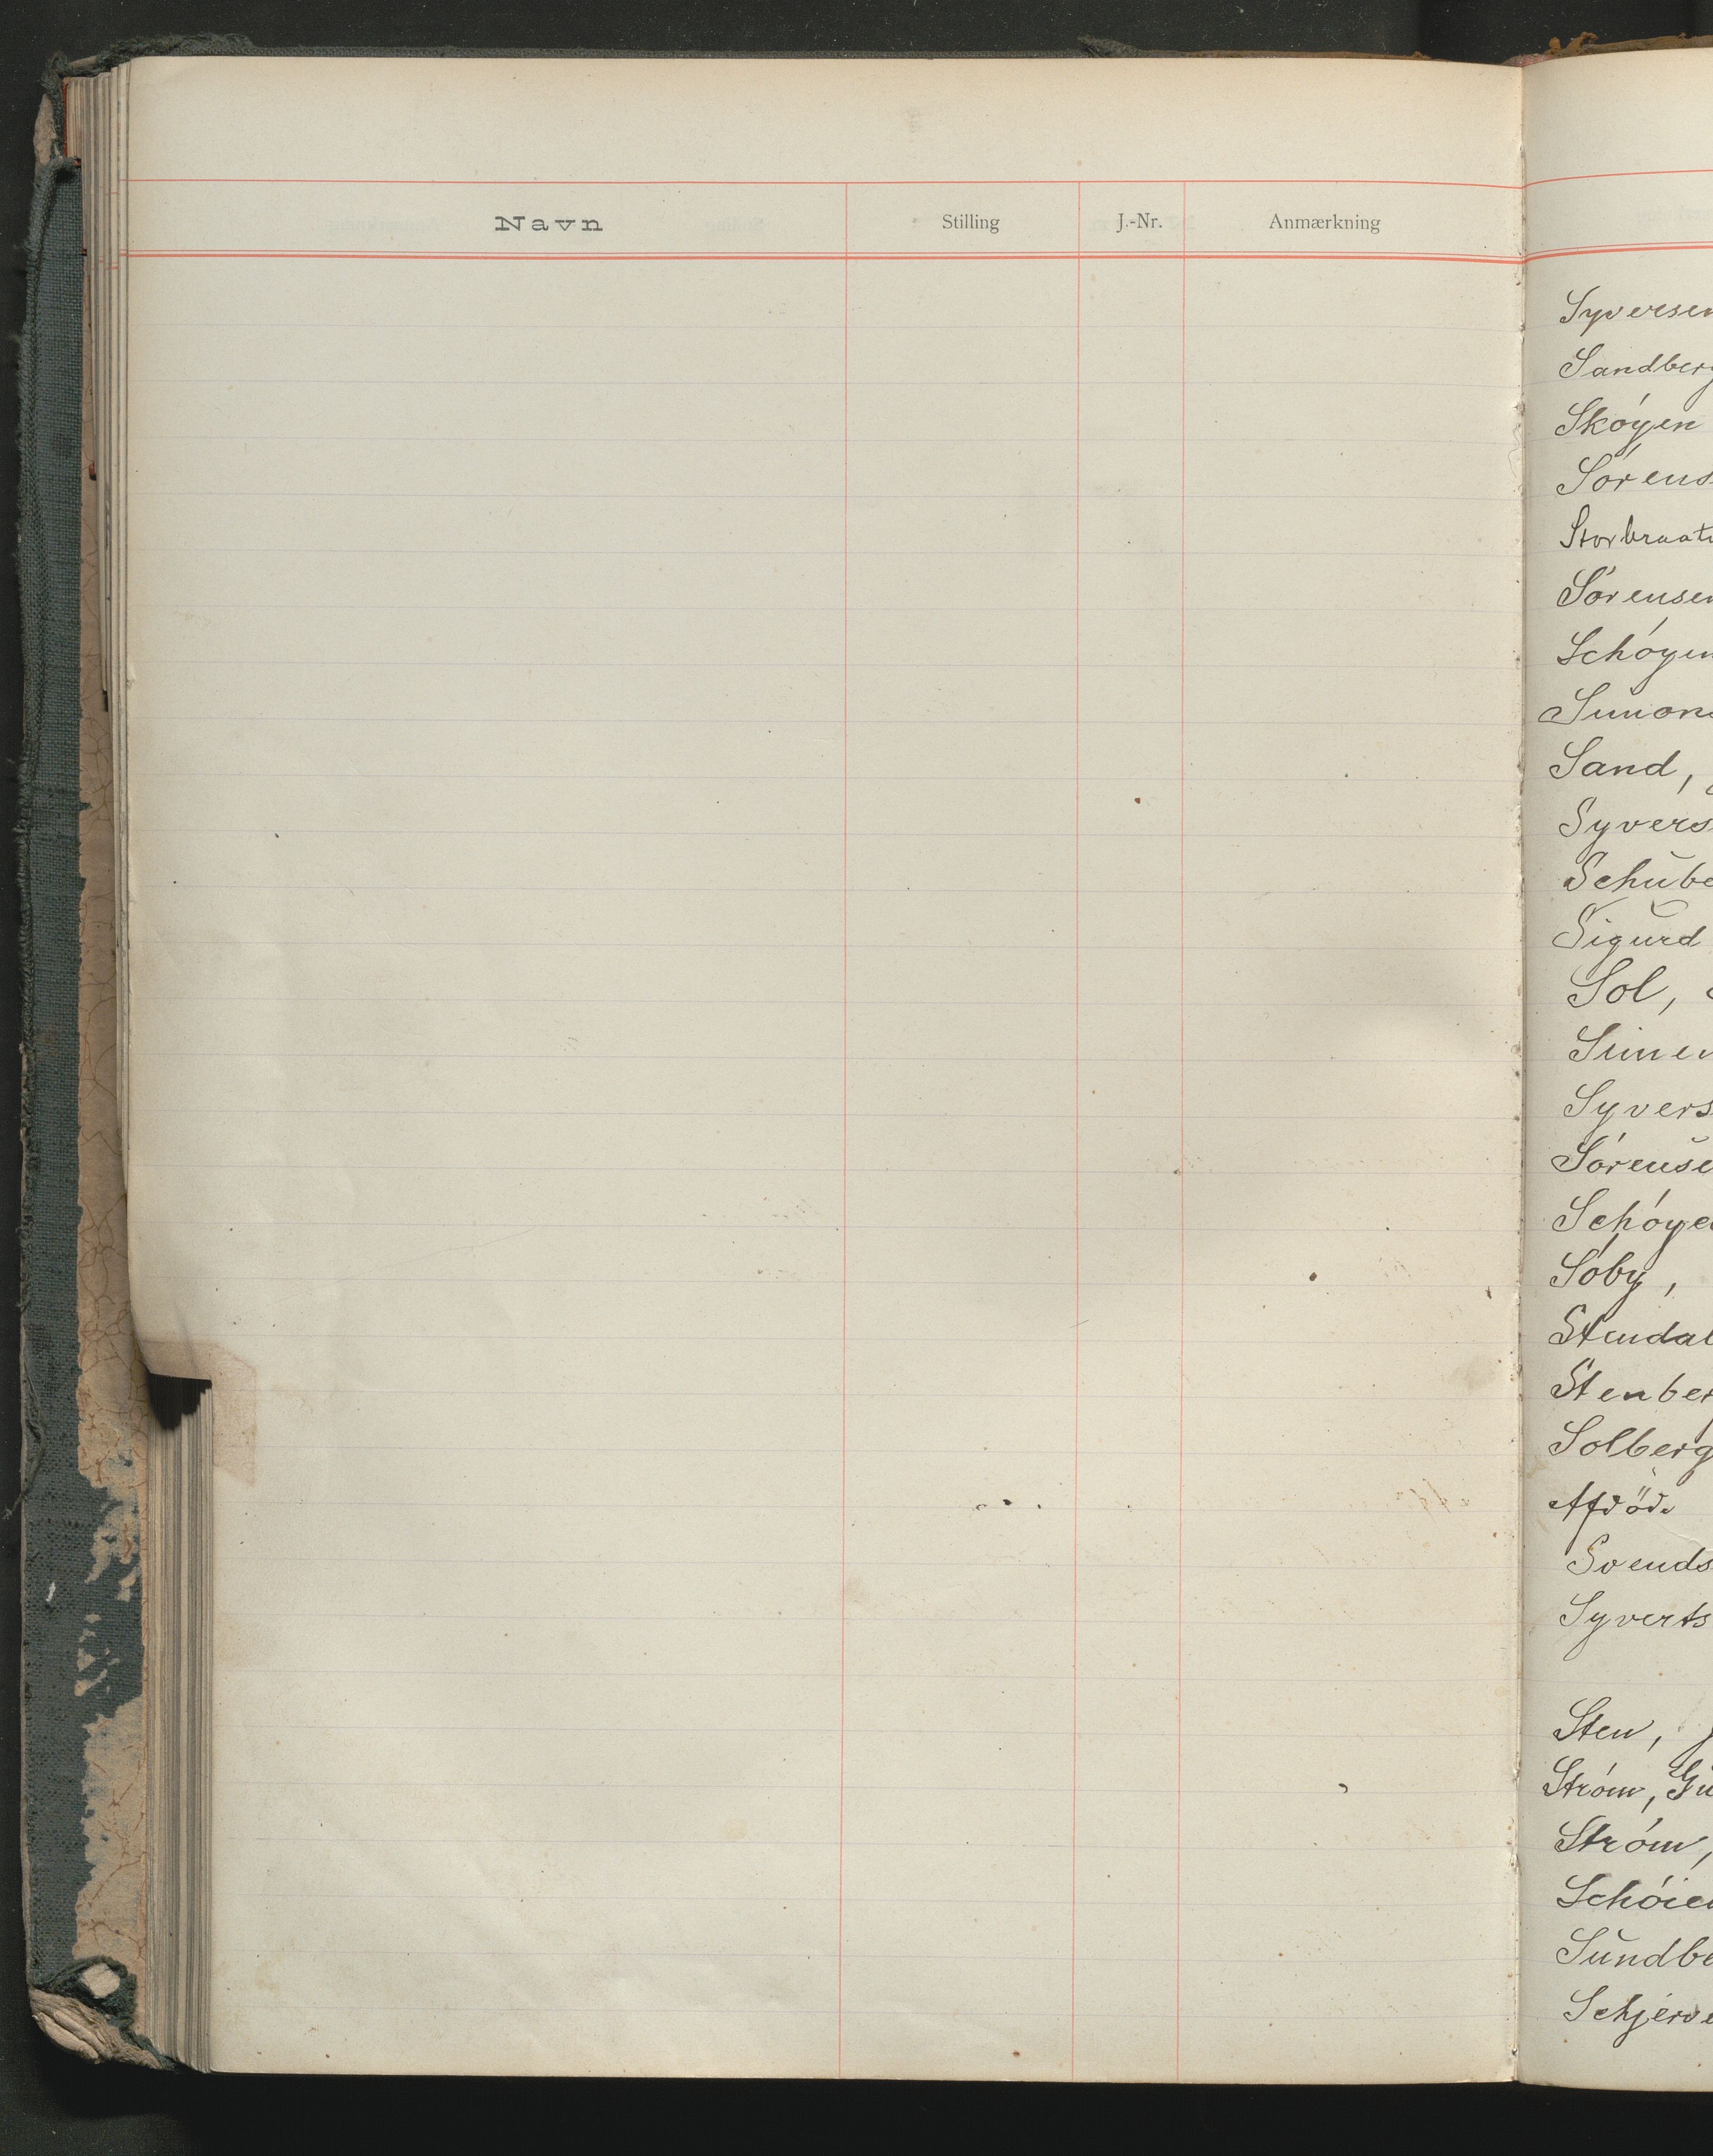 Navn Stilling J.-Nr. Anmærkning
Syversen
Sandberg
Skøyen
Sørens
Storbraate
Sørensen
Schøyen
Simons
Sand,
Syvers
Schŭbe
Sigŭrd
Sol,
Simen
Syvers
Sørense
Schøye
Søby,
Stendal
Stenber
Solberg
Afdöde
Svends
Syverts
Sten,
Strøm, Gu
Strøm,
Schøien
Sŭndbe
Schjerve